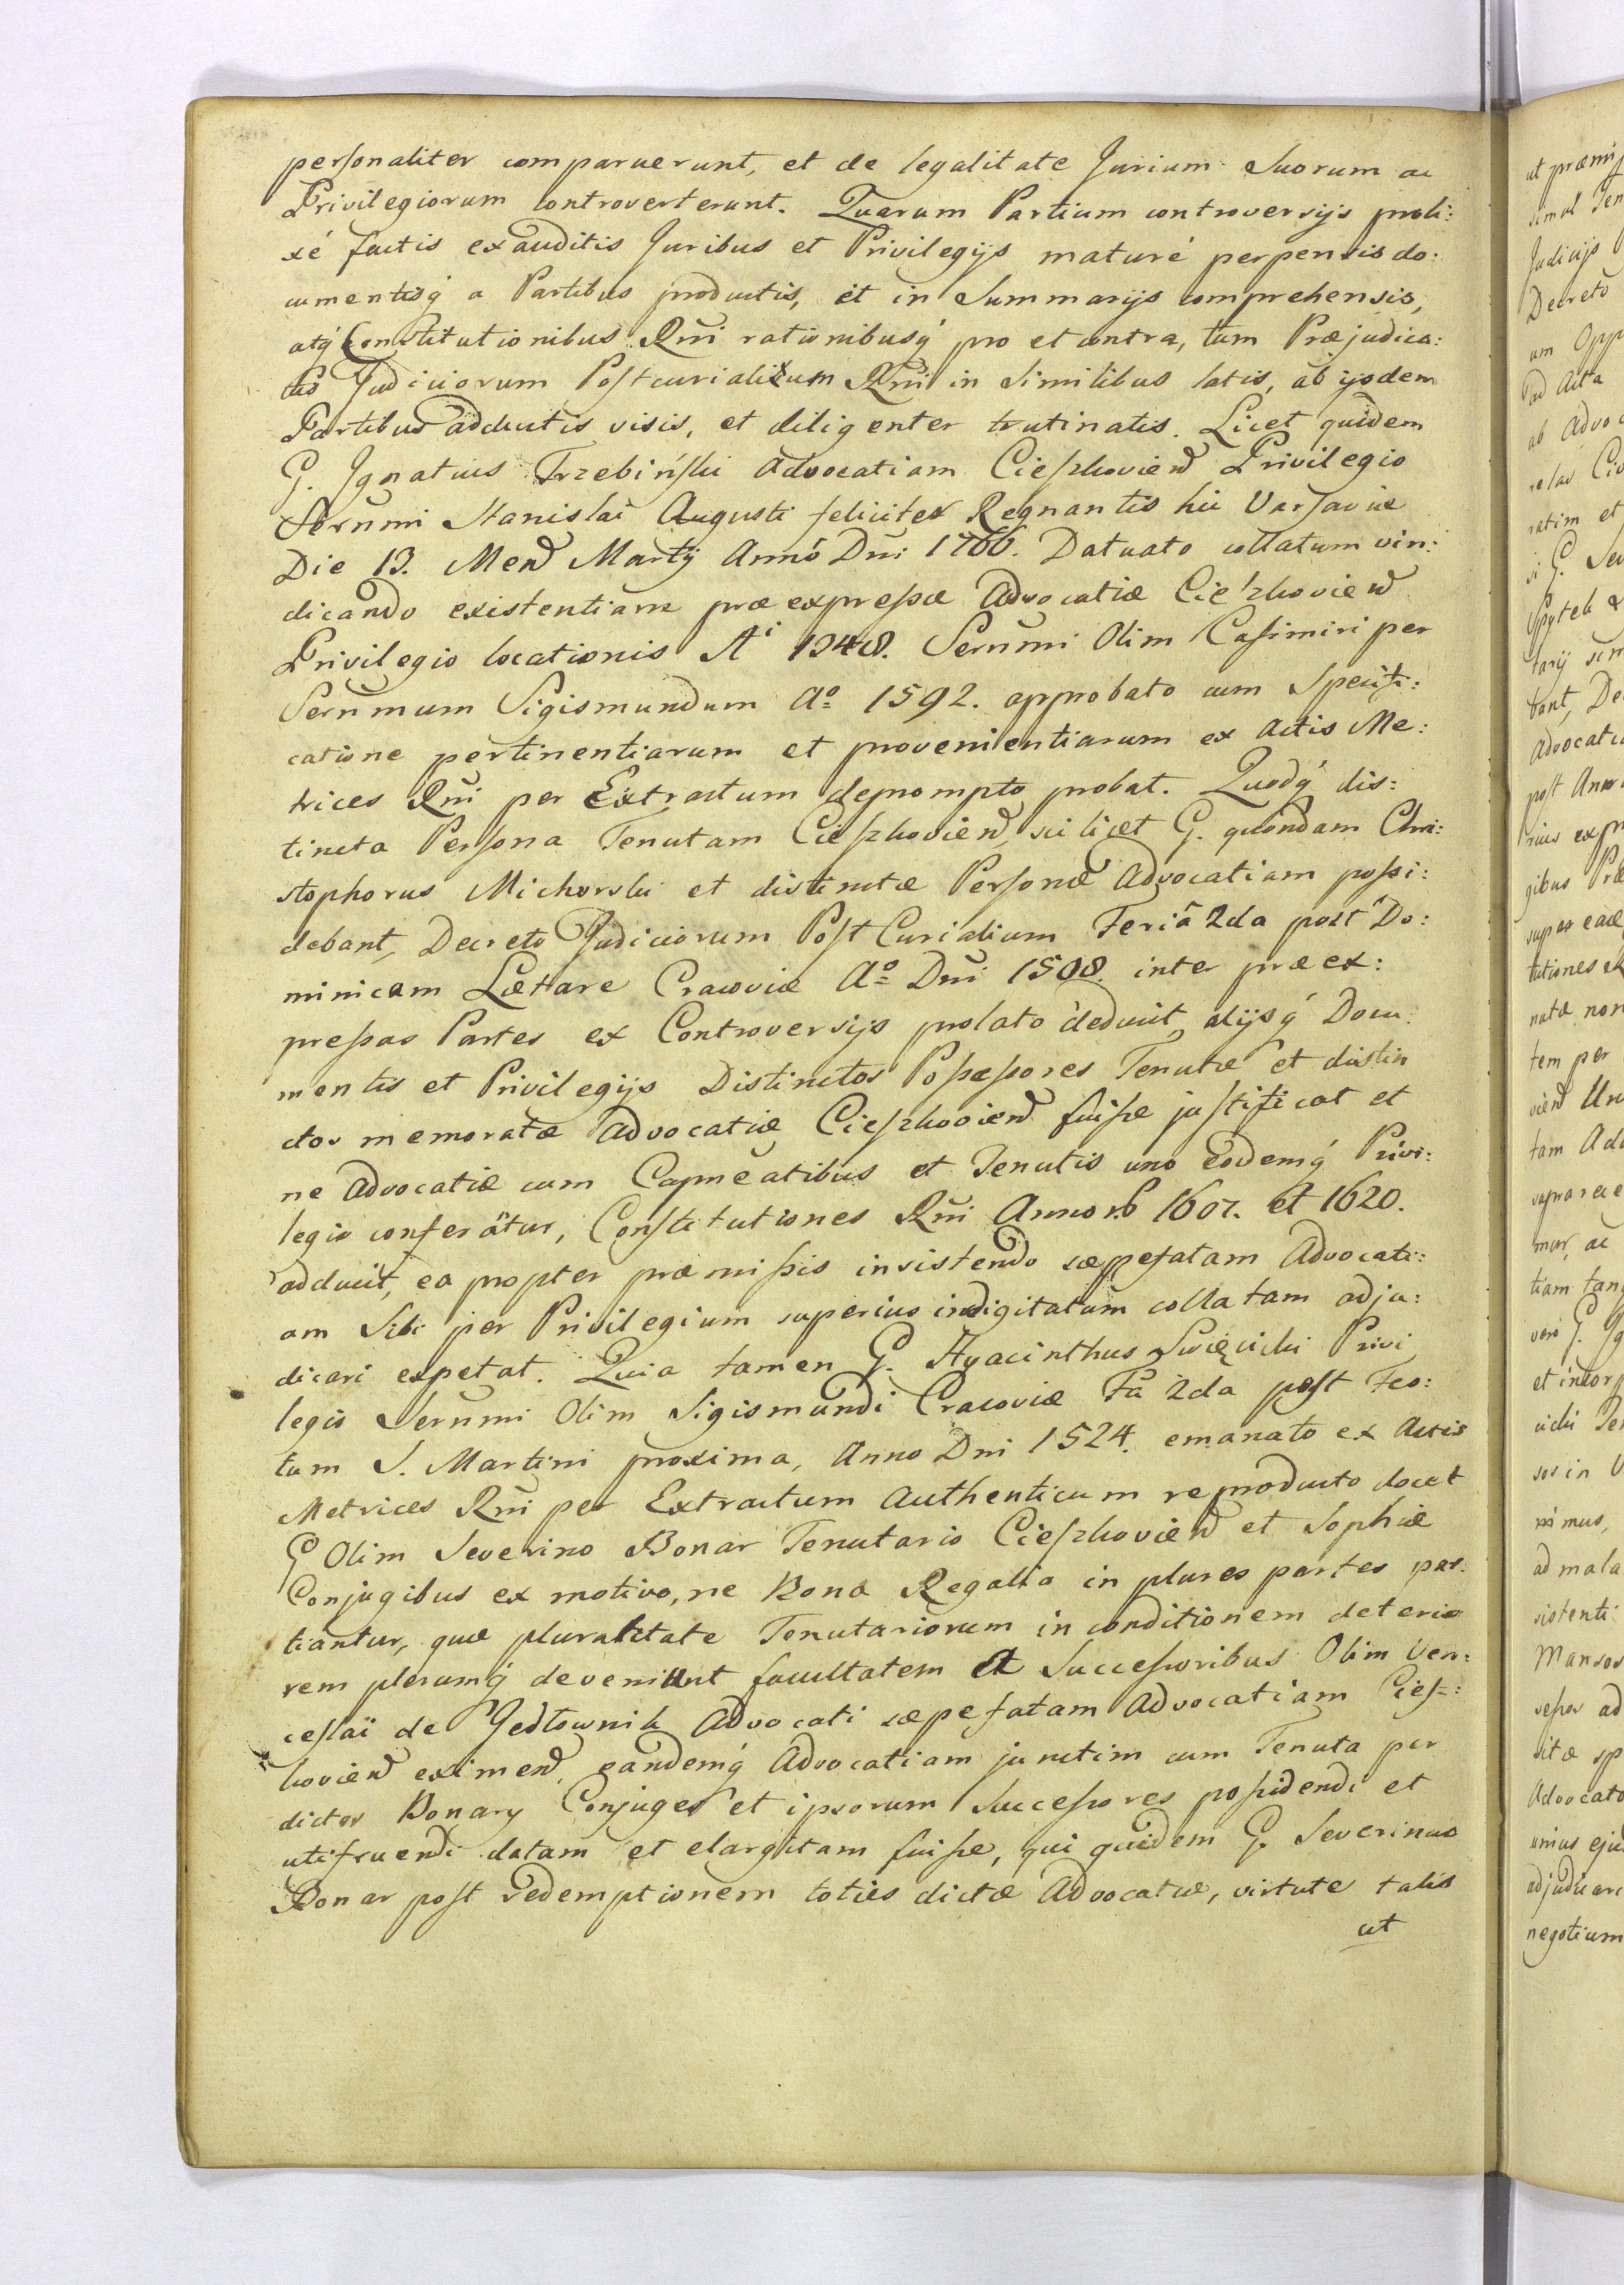 personaliter comparuerunt, et de legalitate Jurium Suorum ac
Privilegiorum controverterunt. Quarum Partium controversijs proli:
xé factis exauditis Juribus et Privilegijs maturé perpensis do:
cumentisq́ a Partibus productis, et in Summarijs comprehensis,
atq́ Constitutionibus Rñi rationibusq́ pro et contra, tum Præjudica:
tis Judiciorum Postcurialium Rñi in Similibus latis, ab ijsdem
Partibus adductis visis, et diligenter trutinatis. Licet quidem
G. Ignatius Trzebiński Advocatiam Cieszkovien Privilegio
Serñmi Stanislai Augusti feliciter Regnantis hic Varsaviæ
Die 13. Men Martij Annó Dñi 1766. Datuato collatum vin:
dicando existentiam præexpressæ Advocatiæ Cieszkovien
Privilegio locationis Aⁱ 1348. Serñmi Olim Casimiri per
Serñmum Sigismundum Aº 1592. approbato cum Specifi:
catione pertinentiarum et provenientiarum ex Actis Me:
trices Rñi per Extractum deprompto probat. Quodq́ dis:
tincta Persona Tenutam Cieszkovien, scilicet G. quondam Chri:
stophorus Michorski et distinctæ Personæ Advocatiam possi:
debant, Decreto Judiciorum Post Curialium Feriâ 2da post Do:
minicam Lætare Cracoviæ Aº Dñi 1508. inter præex:
pressas Partes ex Controversijs prolato deducit, alijsq́ Docu:
mentis et Privilegijs Distinctos Possessores Tenutæ et distin
ctos memoratæ Advocatiæ Cieszkovien fuisse justificat et
ne Advocatiæ cum Capneatibus et Tenutis uno Eodemq́ Privi:
legio conferätur, Constitutiones Rñi Annor 1607. et 1620.
adducit, ea propter præmissis insistendo sæpefatam Advocati:
am Sibi per Privilegium superius indigitatum collatam adju:
dicari expetat. Quia tamen G. Hyacinthus Święcicki Privi
legio Serñmi Olim Sigismundi Cracoviæ Fâ 2da post Fes:
tum S. Martini proxima, Anno Dni 1524. emanato ex Actis
Metrices Rñi per Extractum Authenticum reproducto docet
G Olim Severino Bonar Tenutario Cieszkovien et Sophiæ
Conjugibus ex motivo, ne Bona Regalia in plures partes par:
tiantur, quæ pluralitate Tenutariorum in conditionem deterio
rem plerumq́ deveniunt facultatem A Successoribus Olim Ven:
ceslaï de Jedłownik Advocati sæpefatam Advocatiam Ciesz:
kovien eximen, eandemq́ Advocatiam junctim cum Tenuta per
dictos Bonary Conjuges et ipsorum Successores possidendi et
utifruendi datam et elargitam fuisse, qui quidem G. Severinus
Bonar post redemptionem toties dictæ Advocatiæ, virtute talis
ut